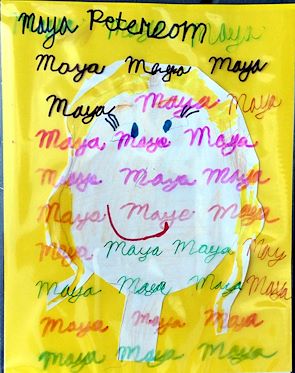 Maya Peterson Maya
Maya Maya Maya
Maya Maya Maya
Maya Maya Maya
Maya Maya Maya
Maya Maya Maya
Maya Maya Maya May
Maya Maya Maya Maya
Maya Maya Maya
Maya Maya Maya